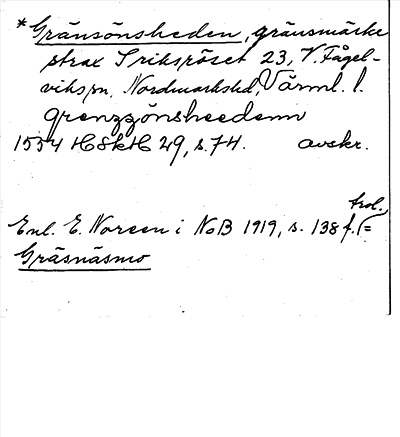 *Gränsönsheden, gränsmärke
strax S riksröset 23, V. Fågel-
viks sn, Nordmarks hd, Värml. l.
grenzzönsheedenn
1554 HSkH 29, s. 74. avskr.
Enl. E. Noreen i NoB 1919, s. 138 f. trol. (=
Gräsnäsmo